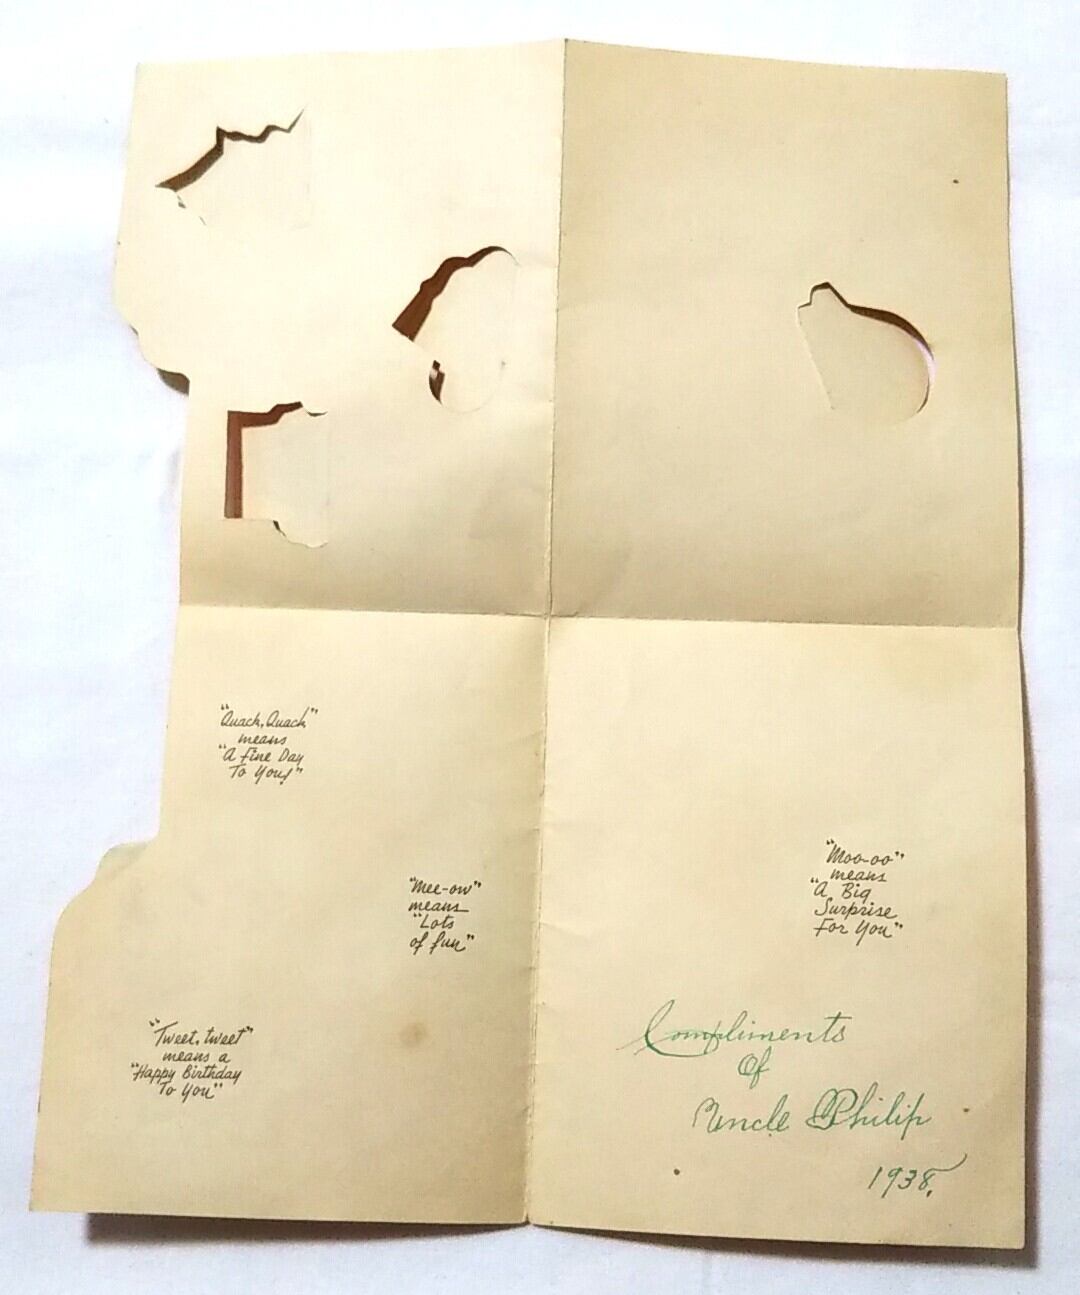 "Quack, Quack"
means
"A Fine Day
To You!"
"Mee-ow"
means
"Lots
of fun"
"Tweet, tweet"
means a
"Happy Birthday
To You"
"Moo-oo"
means
"A Big
Surprise
For You"
Compliments
Of
Uncle Philip
1938.